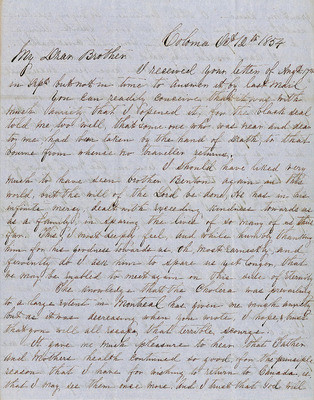 Coloma Oct 12th 1854
My Dear Brother
I received your letter of Augt 17th
in Sept but not in time to answer it by last mail
You can readily conceive that it was with
much anxiety that I opened it, for the black seal
told me too well, that some one who was near and dear
to me, had been taken by the hand of Death, to that
bourne from whence no traveller returns.
I should have liked very
much to have seen brother Benton again in this
world, but the will of the Lord be done, He has in his
infinite mercy dealt with exceeding kindness towards us
as a family, in sparing the lives of so many of us thus
far. This I must deeply feel, and while humbly thanking
him for his goodness towards us Oh, most earnestly and
fervently do I ask him to spare us yet longer, that
we may be enabled to meet again on this side of Eternity
The knowledge that the Cholera was prevailing
to a large extent in Montreal has given me much anxiety
but as it was decreasing when you wrote I hope & trust
that you will all escape that terrible scourge.
It gave me much pleasure to hear that Father
and Mothers health continued so good, for the principle
reason that I have for wishing to return to Canada, is
that I may see them once more, and I trust that God will